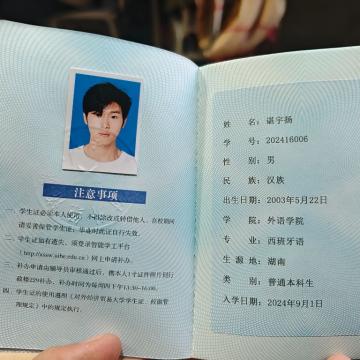 注意事项
一、学生证必须本人使用，不得涂改或转借他人，在校期间
请妥善保管学生证；毕业时此证自行失效。
二、学生证如有遗失，须登录智能学工平台
网上申请补办。
三、补办申请由辅导员审核通过后，携本人1寸证件照片到行
政楼229补办，补办时间为每周四下午13:30-16:00。
四、学生证的使用遵照《对外经济贸易大学学生证、校徽管
理规定》中的规定执行。
姓 名：谌宇扬
学 号：202416006
性 别：男
民 族：汉族
出生日期：2003年5月22日
学 院：外语学院
专 业：西班牙语
生 源 地：湖南
类 别：普通本科生
入学日期：2024年9月1日